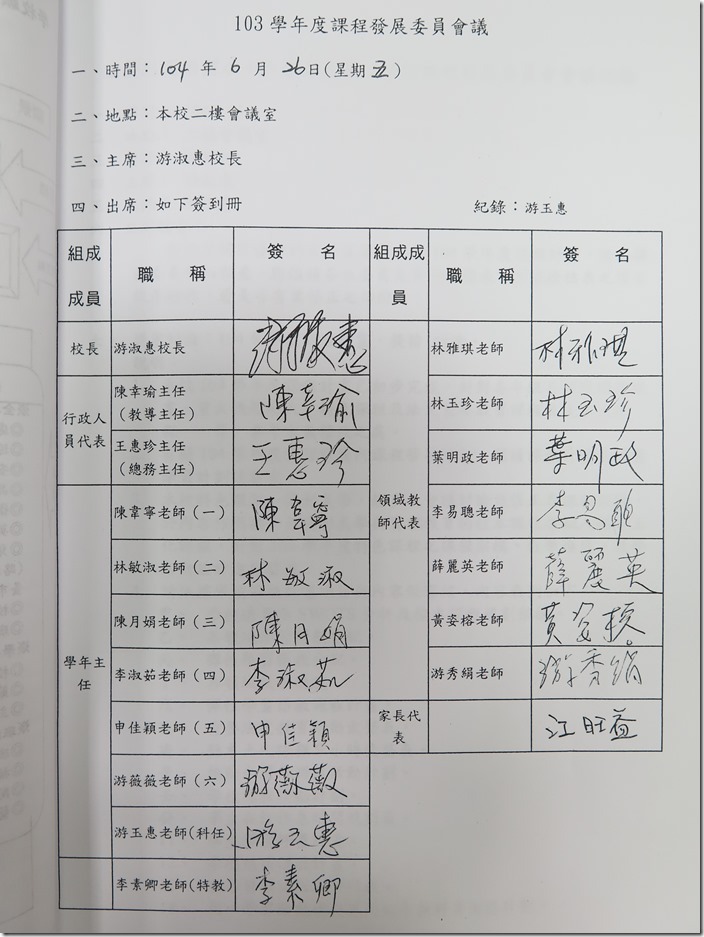 103 學年度課程發展委員會議
一、時間：104 年 6 月 26日(星期 五)
二、地點：本校二樓會議室
三、主席：游淑惠校長
四、出席：如下簽到冊 紀錄：游玉惠
組成成員 職 稱 簽 名 組成成員 職 稱 簽 名
校長 游淑惠校長 游淑惠 林雅琪老師 林雅琪
行政人員代表 陳幸瑜主任（教導主任） 陳幸瑜 領域教師代表 林玉珍老師 林玉珍
王惠珍主任（總務主任） 王惠珍 葉明政老師 葉明政
學年主任 陳韋寧老師（一） 陳韋寧 李易聰老師 李易聰
林敏淑老師（二） 林敏淑 薛麗英老師 薛麗英
陳月娟老師（三） 陳月娟 黃姿榕老師 黃姿榕
李淑茹老師（四） 李淑茹 游秀絹老師 游秀絹
申佳穎老師（五） 申佳穎 家長代表 江旺益
游薇薇老師（六） 游薇薇
游玉惠老師(科任) 游玉惠
李素卿老師(特教) 李素卿